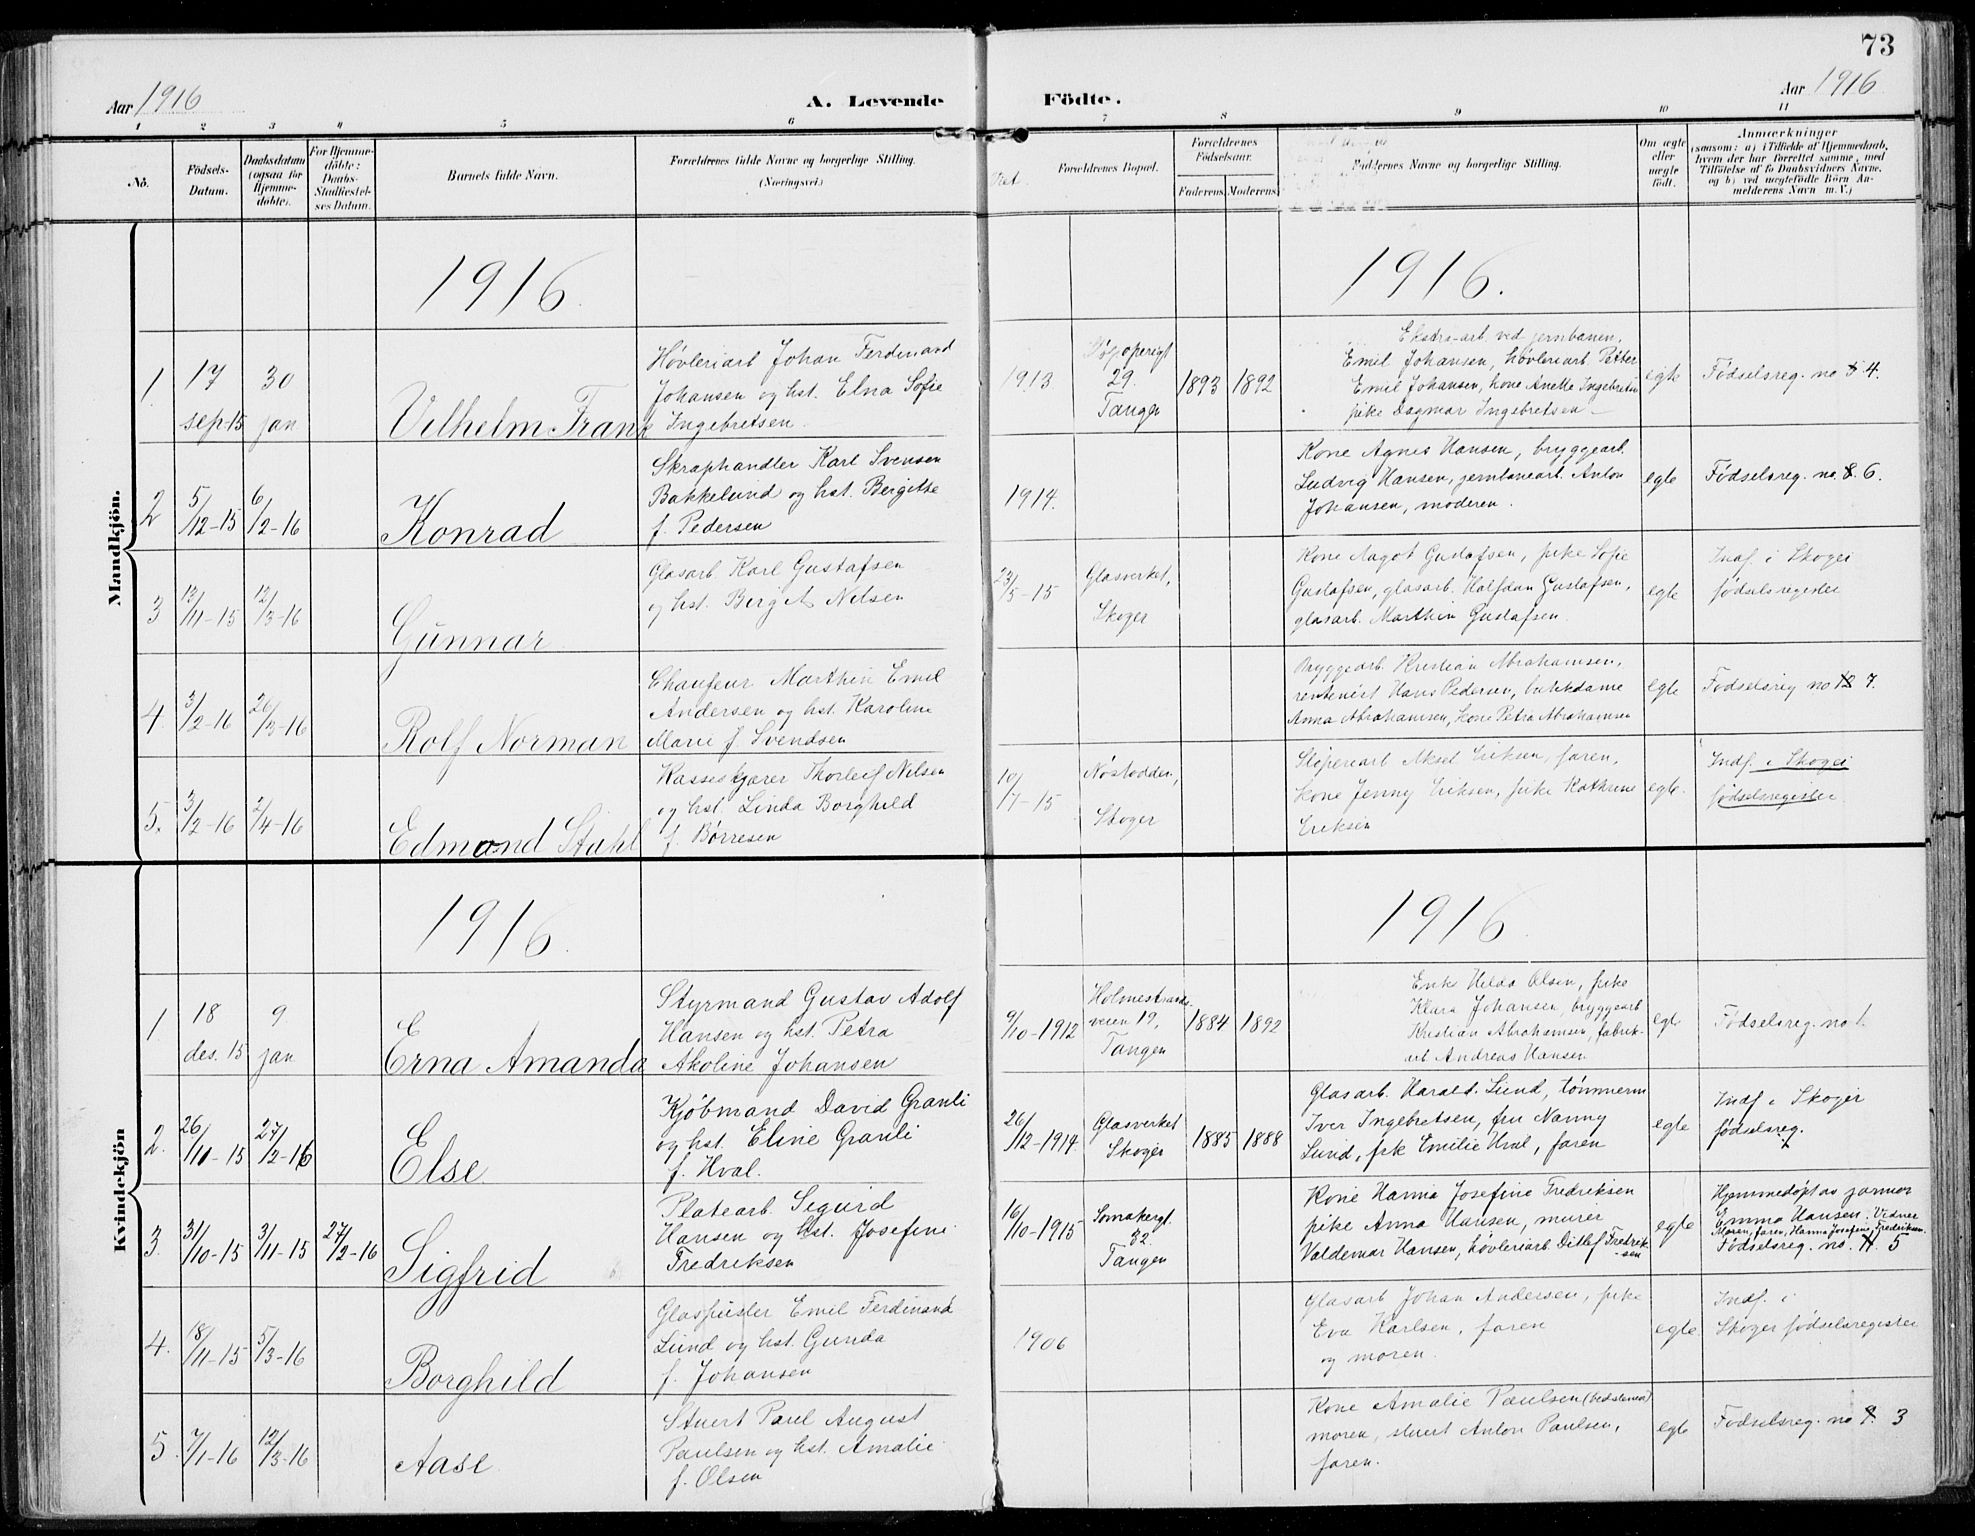 73
Aar 1916
A. Levende
Födte.
Aar 1916
1 2 3 4 5 6 7 8 9 10 11
No.
Födsels-
Datum.
Daabsdatum
(ogsaa for
Hjemme-
döbte).
For Hjemme-
döbte:
Daabs-
Stadfæstel-
ses Datum.
Barnets fulde Navn.
Forældrenes fulde Navne og borgerlige Stilling.
(Næringsvei.)
Viet
Forældrenes Bopæl.
Forældrenes
Fødselsaar.
Faderens. Moderens.
Faddernes Navne og borgerlige Stilling.
Om ægte
eller
uægte
født.
Anmærkninger
(saasom: a) i Tilfælde af Hjemmedaab,
hvem der har forrettet samme, med
Tilføielse af to Daabsvidners Navne,
og b) ved uægtefødte Börn An-
melderens Navn m. V.)
Mandkjön.
1916.
1916.
1.
17
sep-15
30
jan
Vilhelm Frank
Høvleriarb Johan Ferdinand
Johansen og hst. Elna Sofie
Ingebretsen.
1913
29.
Tangen
1893
1892
Ekstra-arb. ved jernbanen.
Emil Johansen, høvleriarb. Petter
Emil Johansen, kone Anette Ingebretsen
pike Dagmar Ingebretsen
egte
Fødselsreg. no 4.
2
5/12-15
6/2-16
Konrad
Skraphandler Karl Svensen
Bakkelund og hst. Bergitte
f. Pedersen
1914.
Kone Agnes Hansen, bryggearb.
Ludvig Hansen, jernbanearb. Anton
Johansen, moderen.
egte
Fødselsreg. no. 8. 6.
3
13/11-15
12/3-16
Gunnar
Glasarb. Karl Gustafsen
og hst. Berg­it Nilsen
23/5-15
Glasverket,
Skoger
Kone Aagot Gustafsen, pike Sofie
Gustafsen, glasarb. Halfdan Gustafsen,
glasarb. Marthin Gustafsen.
egte
Indf. i Skoger
fødselsregister
4.
3/2-16
26/3-16
Rolf Norman
Chaufeur Marthin Emil
Andersen og hst. Karoline
Marie f. Svendsen
Bryggearb Kristian Abrahamsen,
rentenist Hans Pedersen, butikdame
Anna Abrahamsen, kone Petra Abrahamsen
egte
Fødselsreg no 12 7.
5.
3/2-16
2/4-16
Edmond Stahl
Kasseskjærer Thorleif Nilsen
og hst. Linda Borghild
f. Børresen
10/7-15
Nøstodden,
Skoger
Sliperiarb Aksel Eriksen, faren,
kone Jenny Eriksen, pike Kathrine
Eriksen
egte.
Indf. i Skoger
fødselsregister
Kvindekjön
1916.
1916
1.
18
des. 15
9
jan
Erna Amanda
Styrmand Gustav Adolf
Hansen og hst. Petra
Akoline Johansen
9/10-1912
Holmestrands-
veien 19,
Tangen
1884
1892
Enke Hilda Olsen, pike
Klara Johansen, bryggearb
Kristian Abrahamsen, fabrik-
arb Andreas Hansen
egte
Fødselsreg. no 1.
2.
26/10-15
27/2-16
Else
Kjøbmand David Granli
og hst. Eline Granli
f. Hval.
26/12-1914.
Glasverket
Skoger
1885
1888
Glasarb. Harald Lund, tømmerm
Iver Ingebretsen, fru Nanny
Lund, frk Emilie Hval, faren
egte
Indf. i Skoger
fødselsreg.
3.
31/10-15
3/11-15
27/2-16
Sigfrid
Platearb. Sigurd
Hansen og hst. Josefine
Fredriksen
16/10-1915
Tomakergt.
32.
Tangen
Kone Hanna Josefine Fredriksen
pike Anna Hansen, murer
Valdemar Hansen, høvleriarb. Ditlef Fredrik-
sen
egte
Hjemmedøpt av jormor
Emma Hansen. Vidner
Moren, faren, Hanna Josefine Fredriksen.
Fødselsreg. no. 11. 5
4.
18/11-15
5/3-16
Borghild
Glaspuster Emil Ferdinand
Lund og hst. Gunda
f. Johansen
1906
Glasarb Johan Andersen, pike
Eva Karlsen, faren
og moren.
egte
Indf. i
Skoger fødselsregister
5.
7/1-16
12/3-16
Aase
Stuert Paul August
Paulsen og hst. Amalie
f. Olsen
Kone Amalie Paulsen (bedstemor)
moren, stuert Anton Paulsen,
faren.
egte
Fødselsreg. no 9. 3